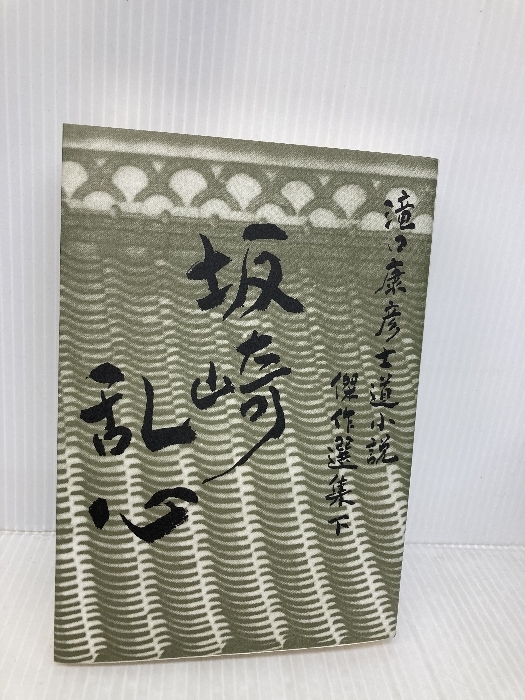 滝口康彦士道小説
傑作選集下
坂崎
乱心